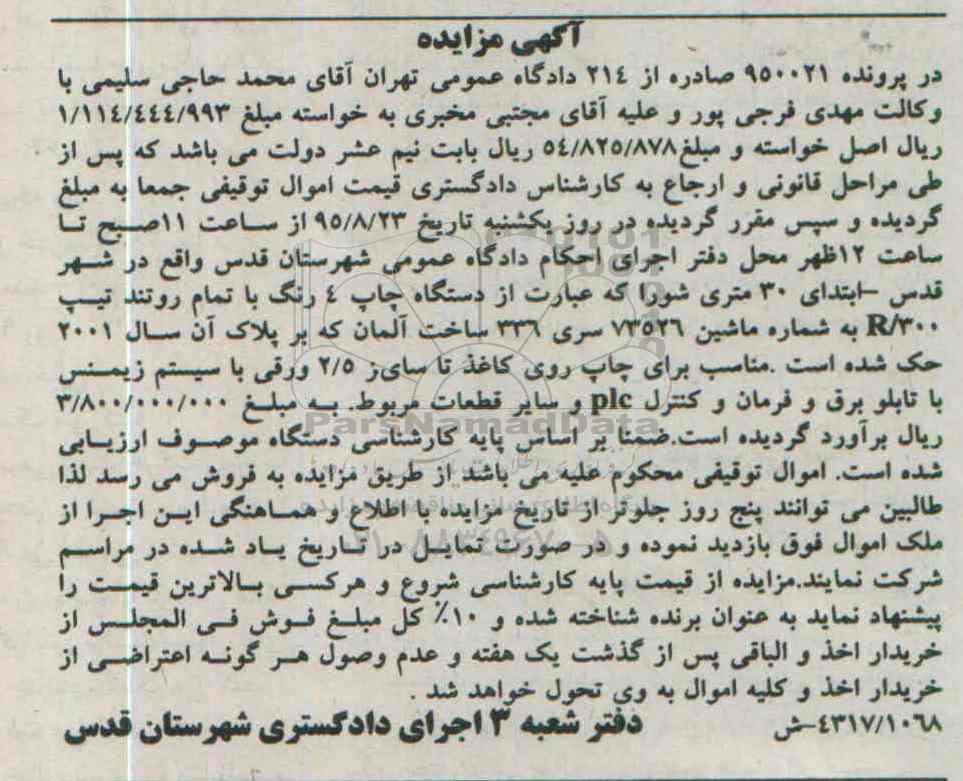 آگهی مزایده
در پرونده ۹۵۰۰۲۱ صادره از ۲۱٤ دادگاه عمومی تهران آقای محمد حاجی سلیمی با
وکالت مهدی فرجی پور و علیه آقای مجتبی مخبری به خواسته مبلغ ۱/۱۱٤/٤٤٤/۹۹۳
ریال اصل خواسته و مبلغ٥٤/۸۲٥/۸۷۸ ریال بابت نیم عشر دولت می باشد که پس از
طی مراحل قانونی و ارجاع به کارشناس دادگستری قیمت اموال توقیفی جمعا به مبلغ
گردیده و سپس مقرر گردیده در روز یکشنبه تاریخ ۹٥/۸/۲۳ از ساعت ۱۱صبح تا
ساعت ۱۲ظهر محل دفتر اجرای احکام دادگاه عمومی شهرستان قدس واقع در شهر
قدس –ابتدای ۳۰ متری شورا که عبارت از دستگاه چاپ ٤ رنگ با تمام روتند تیپ
R/۳۰۰ به شماره ماشین ۷۳٥۲٦ سری ۳۳٦ ساخت آلمان که بر پلاک آن سال ۲۰۰۱
حک شده است .مناسب برای چاپ روی کاغذ تا سایز ۲/٥ ورقی با سیستم زیمنس
با تابلو برق و فرمان و کنترل plc و سایر قطعات مربوط. به مبلغ ۳/۸۰۰/۰۰۰/۰۰۰
ریال برآورد گردیده است.ضمنا بر اساس پایه کارشناسی دستگاه موصوف ارزیابی
شده است. اموال توقیفی محکوم علیه می باشد از طریق مزایده به فروش می رسد لذا
طالبین می توانند پنج روز جلوتر از تاریخ مزایده با اطلاع و هماهنگی این اجرا از
ملک اموال فوق بازدید نموده و در صورت تمایل در تاریخ یاد شده در مراسم
شرکت نمایند.مزایده از قیمت پایه کارشناسی شروع و هرکسی بالاترین قیمت را
پیشنهاد نماید به عنوان برنده شناخته شده و ۱۰٪ کل مبلغ فوش فی المجلس از
خریدار اخذ و الباقی پس از گذشت یک هفته و عدم وصول هر گونه اعتراضی از
خریدار اخذ و کلیه اموال به وی تحول خواهد شد .
٤۳۱۷/۱۰٦۸–ش دفتر شعبه ۳ اجرای دادگستری شهرستان قدس
ParsNamadData